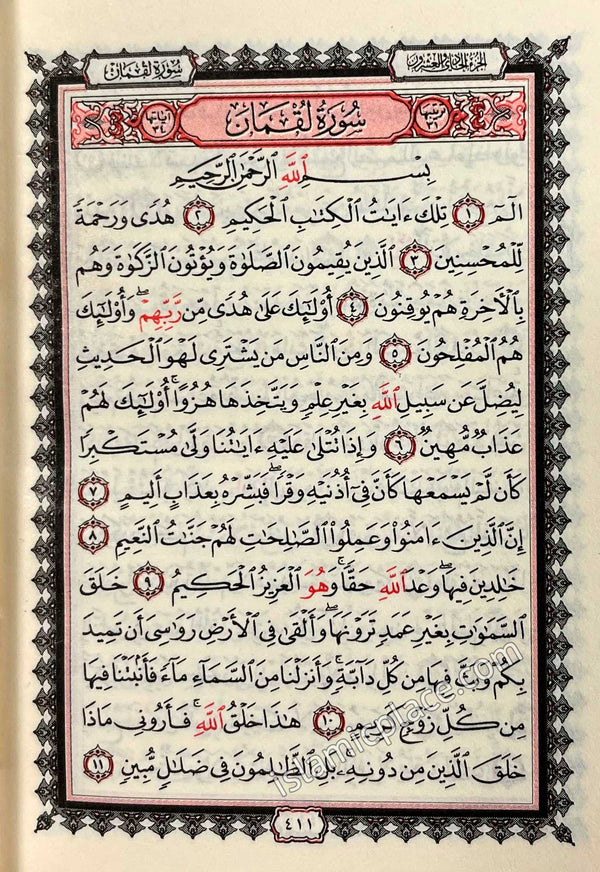 سورة لقمان
الجزء الحادي والعشرون
ترتيبها ٣١
سُورَةُ لُقْمَانَ
آياتها ٣٤
بِسْمِ ٱللَّهِ ٱلرَّحْمَٰنِ ٱلرَّحِيمِ
الٓمٓ ١ تِلْكَ ءَايَٰتُ ٱلْكِتَٰبِ ٱلْحَكِيمِ ٢ هُدًى وَرَحْمَةً
لِّلْمُحْسِنِينَ ٣ ٱلَّذِينَ يُقِيمُونَ ٱلصَّلَوٰةَ وَيُؤْتُونَ ٱلزَّكَوٰةَ وَهُم
بِٱلْءَاخِرَةِ هُمْ يُوقِنُونَ ٤ أُو۟لَٰٓئِكَ عَلَىٰ هُدًى مِّن رَّبِّهِمْ ۖ وَأُو۟لَٰٓئِكَ
هُمُ ٱلْمُفْلِحُونَ ٥ وَمِنَ ٱلنَّاسِ مَن يَشْتَرِى لَهْوَ ٱلْحَدِيثِ
لِيُضِلَّ عَن سَبِيلِ ٱللَّهِ بِغَيْرِ عِلْمٍ وَيَتَّخِذَهَا هُزُوًا ۚ أُو۟لَٰٓئِكَ لَهُمْ
عَذَابٌ مُّهِينٌ ٦ وَإِذَا تُتْلَىٰ عَلَيْهِ ءَايَٰتُنَا وَلَّىٰ مُسْتَكْبِرًا
كَأَن لَّمْ يَسْمَعْهَا كَأَنَّ فِىٓ أُذُنَيْهِ وَقْرًا ۖ فَبَشِّرْهُ بِعَذَابٍ أَلِيمٍ ٧
إِنَّ ٱلَّذِينَ ءَامَنُوا۟ وَعَمِلُوا۟ ٱلصَّٰلِحَٰتِ لَهُمْ جَنَّٰتُ ٱلنَّعِيمِ ٨
خَٰلِدِينَ فِيهَا ۖ وَعْدَ ٱللَّهِ حَقًّا ۚ وَهُوَ ٱلْعَزِيزُ ٱلْحَكِيمُ ٩ خَلَقَ
ٱلسَّمَٰوَٰتِ بِغَيْرِ عَمَدٍ تَرَوْنَهَا ۖ وَأَلْقَىٰ فِى ٱلْأَرْضِ رَوَٰسِىَ أَن تَمِيدَ
بِكُمْ وَبَثَّ فِيهَا مِن كُلِّ دَآبَّةٍ ۚ وَأَنزَلْنَا مِنَ ٱلسَّمَآءِ مَآءً فَأَنۢبَتْنَا فِيهَا
مِن كُلِّ زَوْجٍ كَرِيمٍ ١٠ هَٰذَا خَلْقُ ٱللَّهِ فَأَرُونِى مَاذَا
خَلَقَ ٱلَّذِينَ مِن دُونِهِۦ ۚ بَلِ ٱلظَّٰلِمُونَ فِى ضَلَٰلٍ مُّبِينٍ ١١
٤١١
islamicplace.com